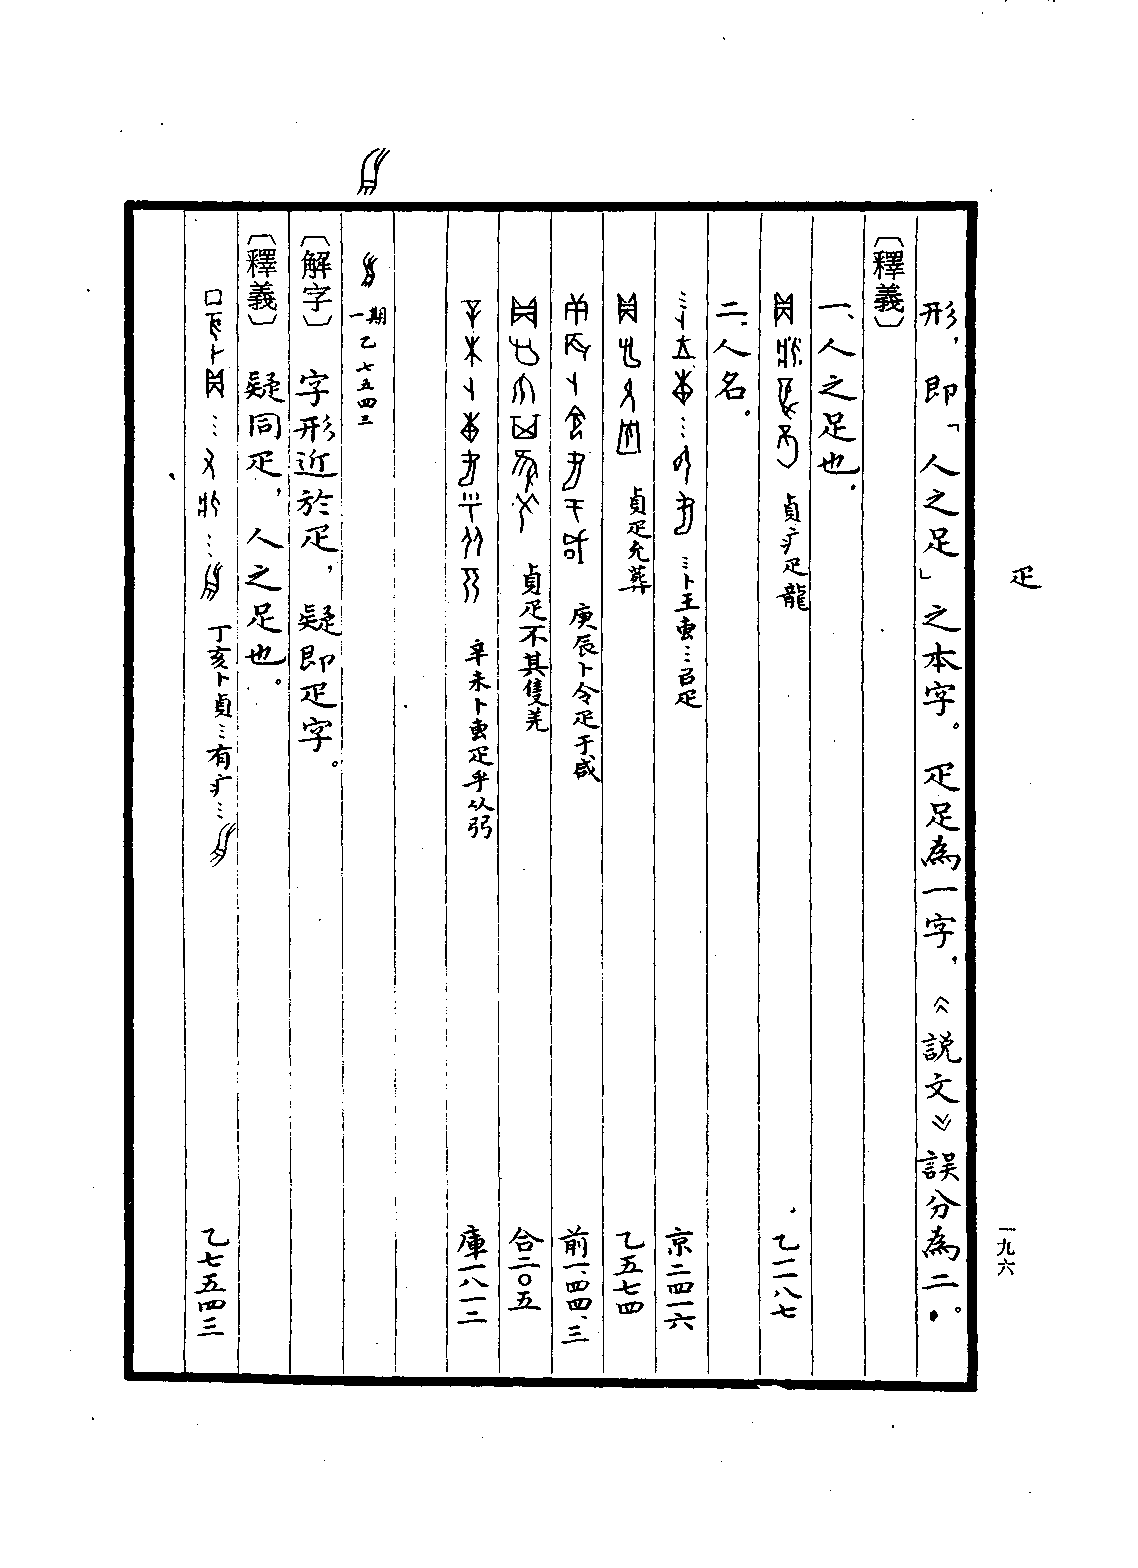 疋
一九六
形，即「人之足」之本字。疋足為一字，《說文》誤分為二。
〔釋義〕
一、人之足也。
貞疒疋龍 乙一一八七
二、人名。
⋮卜王叀⋮㠯疋 京二四一六
貞疋允葬 乙五七四
庚辰卜令疋于咸 前一、四四、三
貞疋不其隻羌 合二〇五
辛未卜叀疋乎从弜 庫一八一二
一期 乙七五四三
〔解字〕 字形近於疋，疑即疋字。
〔釋義〕 疑同疋，人之足也。
丁亥卜貞⋮有疒⋮ 乙七五四三